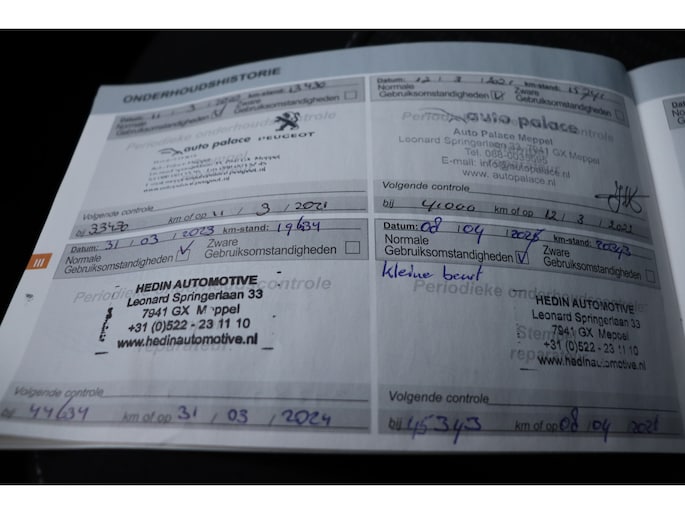 ONDERHOUDSHISTORIE
Datum: 11 / 3 / 2020 km-stand: 13430
Normale
Gebruiksomstandigheden
Zware
Gebruiksomstandigheden
Periodieke onderhoudscontrole
auto palace PEUGEOT
Volgende controle
bij 33430 km of op 11 / 3 / 2021
Datum: 12 / 3 / 2021 km-stand:
Normale
Gebruiksomstandigheden
Zware
Gebruiksomstandigheden
auto palace
Auto Palace Meppel
Leonard Springerlaan 33, 7941 GX Meppel
E-mail: info@autopalace.nl
www.autopalace.nl
Volgende controle
bij 41000 km of op 12 / 3 / 2022
Datum: 31 / 03 / 2023 km-stand: 19634
Normale
Gebruiksomstandigheden
Zware
Gebruiksomstandigheden
Periodieke controle
HEDIN AUTOMOTIVE
Leonard Springerlaan 33
7941 GX Meppel
+31 (0)522 - 23 11 10
www.hedinautomotive.nl
reparateur
Volgende controle
bij 44634 km of op 31 / 03 / 2024
Datum: 08 / 04 / km-stand: 20343
Normale
Gebruiksomstandigheden
Zware
Gebruiksomstandigheden
kleine beurt
Periodieke onderhoudscontrole
HEDIN AUTOMOTIVE
Leonard Springerlaan 33
7941 GX Meppel
+31 (0)522 - 23 11 10
www.hedinautomotive.nl
Volgende controle
bij 45343 km of op 08 / 04 /
III